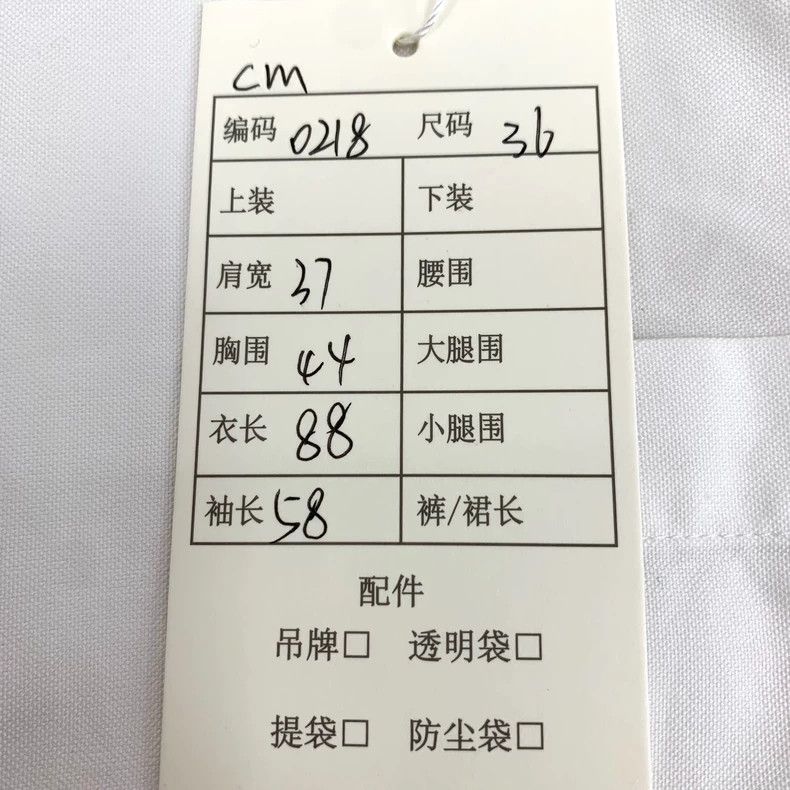 cm
编码 0218 尺码 36
上装 下装
肩宽 37 腰围
胸围 44 大腿围
衣长 88 小腿围
袖长 58 裤/裙长
配件
吊牌□ 透明袋□
提袋□ 防尘袋□